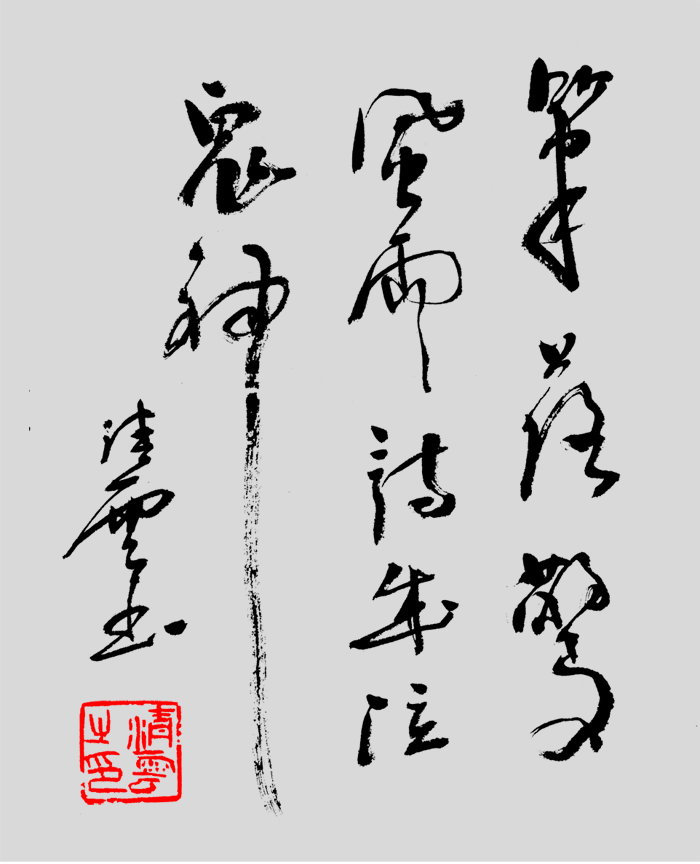 筆落驚
風雨詩成泣
鬼神
清雲書
清雲
之印